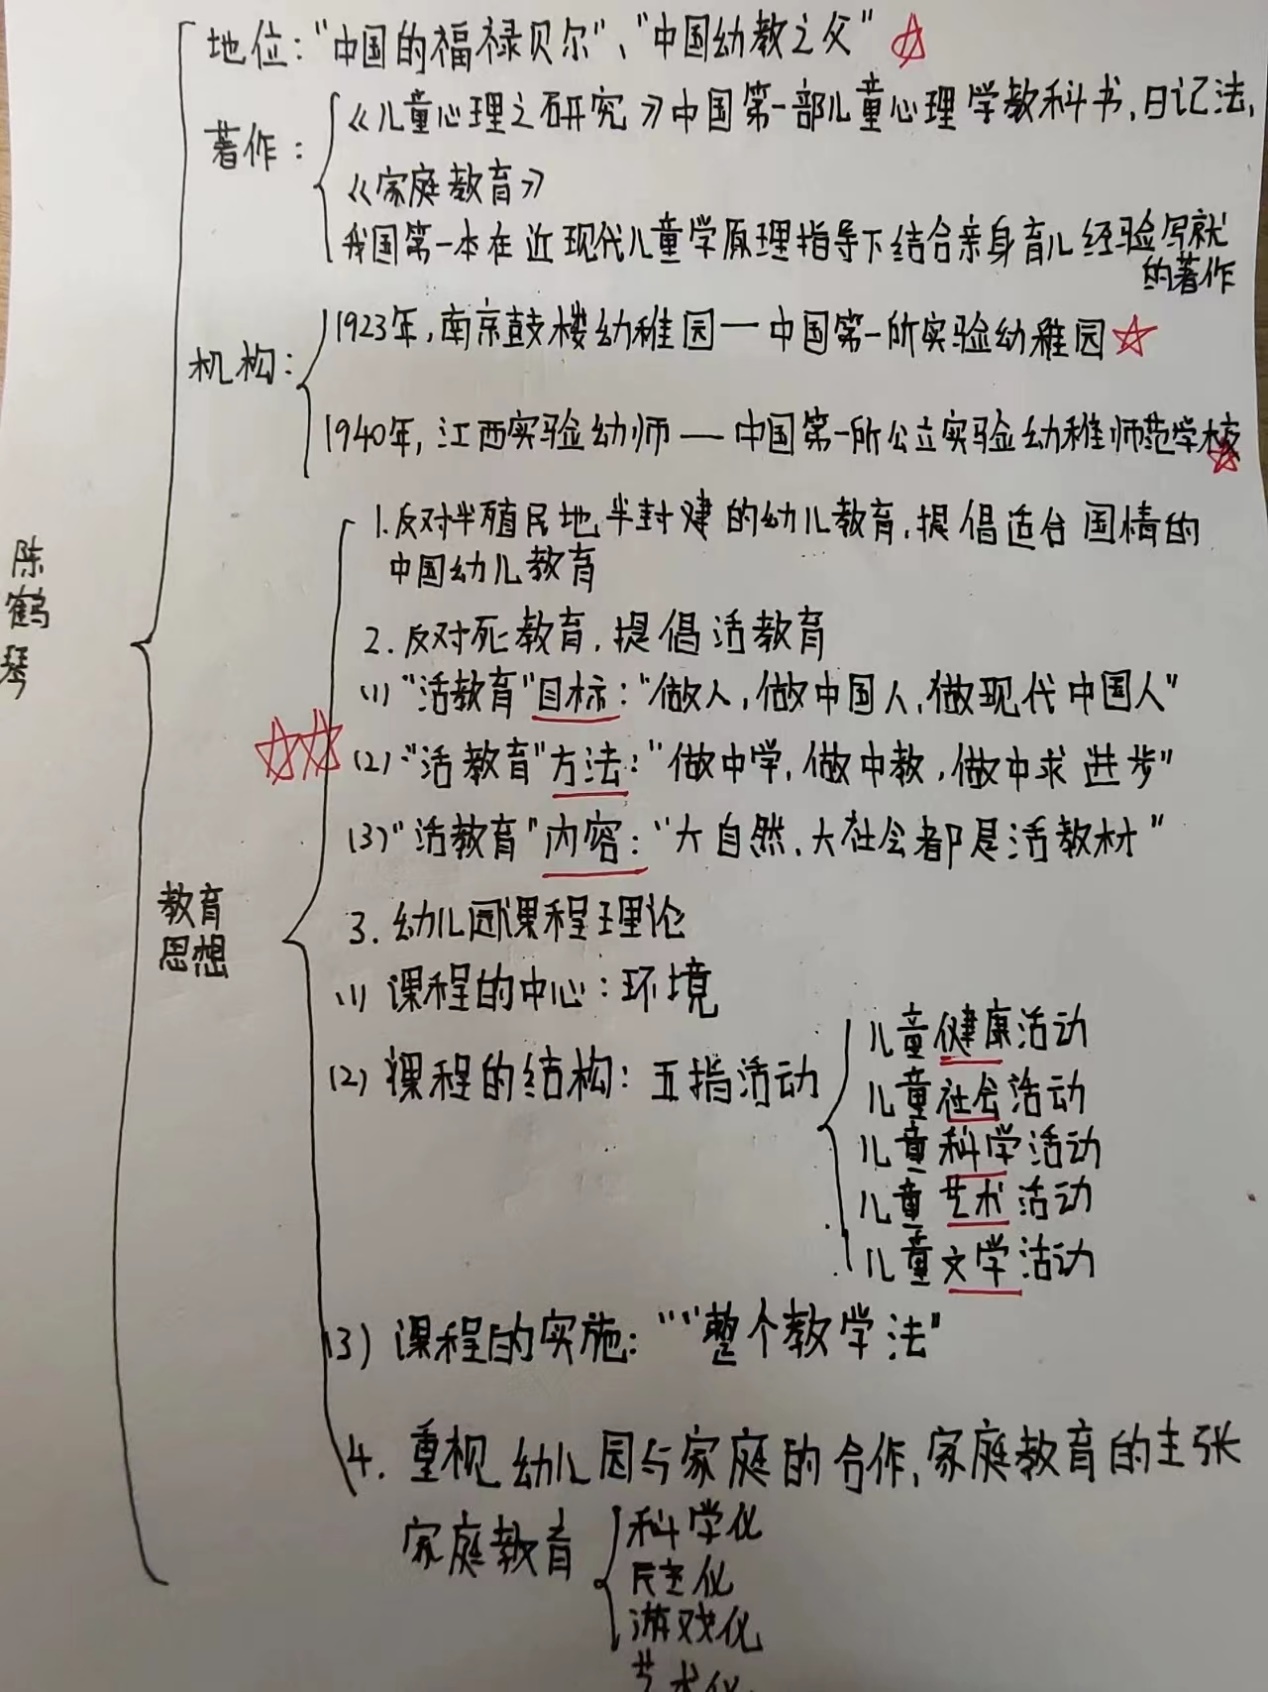 地位：“中国的福禄贝尔”、“中国幼教之父”
著作：
《儿童心理之研究》中国第一部儿童心理学教科书，日记法，
《家庭教育》
我国第一本在近现代儿童学原理指导下结合亲身育儿经验写就
的著作
机构：
1923年，南京鼓楼幼稚园一中国第一所实验幼稚园
1940年，江西实验幼师 — 中国第一所公立实验幼稚师范学校
陈鹤琴
教育
思想
1.反对半殖民地半封建的幼儿教育，提倡适合国情的
中国幼儿教育
2.反对死教育，提倡活教育
(1)“活教育”目标：“做人，做中国人，做现代中国人”
(2)“活教育”方法：“做中学，做中教，做中求进步”
(3)“活教育”内容：“大自然、大社会都是活教材”
3.幼儿园课程理论
(1) 课程的中心：环境
(2) 课程的结构：五指活动
儿童健康活动
儿童社会活动
儿童科学活动
儿童艺术活动
儿童文学活动
(3) 课程的实施：““整个教学法”
4. 重视幼儿园与家庭的合作，家庭教育的主张
家庭教育
科学化
民主化
游戏化
艺术化